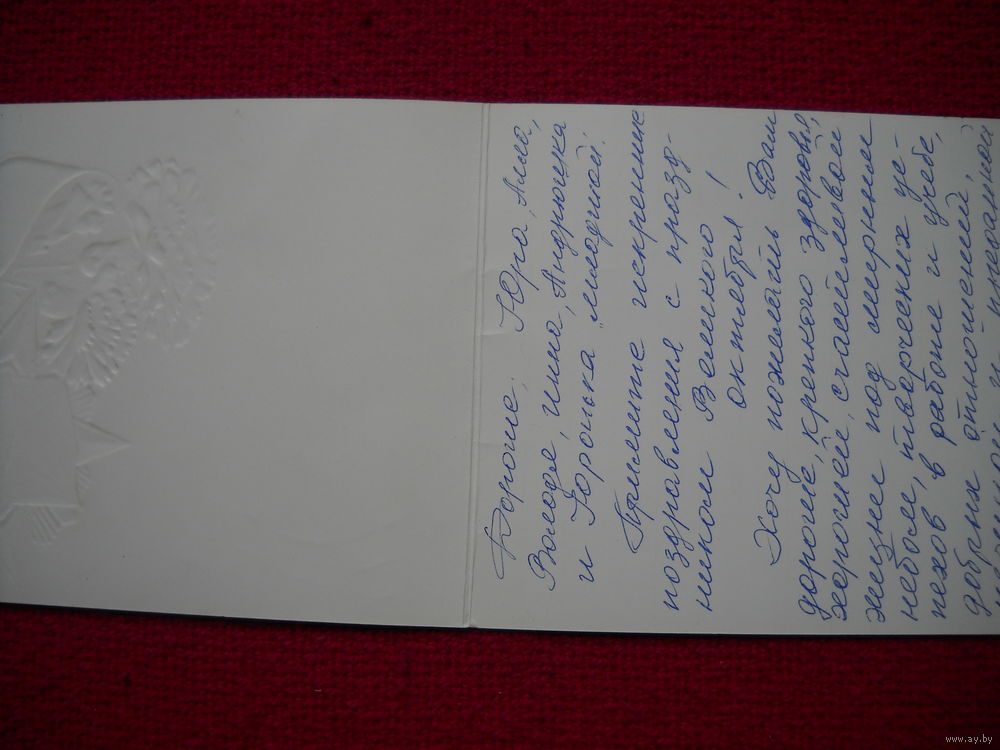 Дорогие, Юра, Алла,
Володя, Инна, Андрюшка
и Юронька "младший".
Примите искренние
поздравления с празд-
ником Великого
октября!
Хочу пожелать Вам
дорогие, крепкого здоровья,
хорошей, счастливой
жизни под мирным
небом, творческих ус-
пехов в работе и учебе,
добрых отношений,
и
www.ay.by